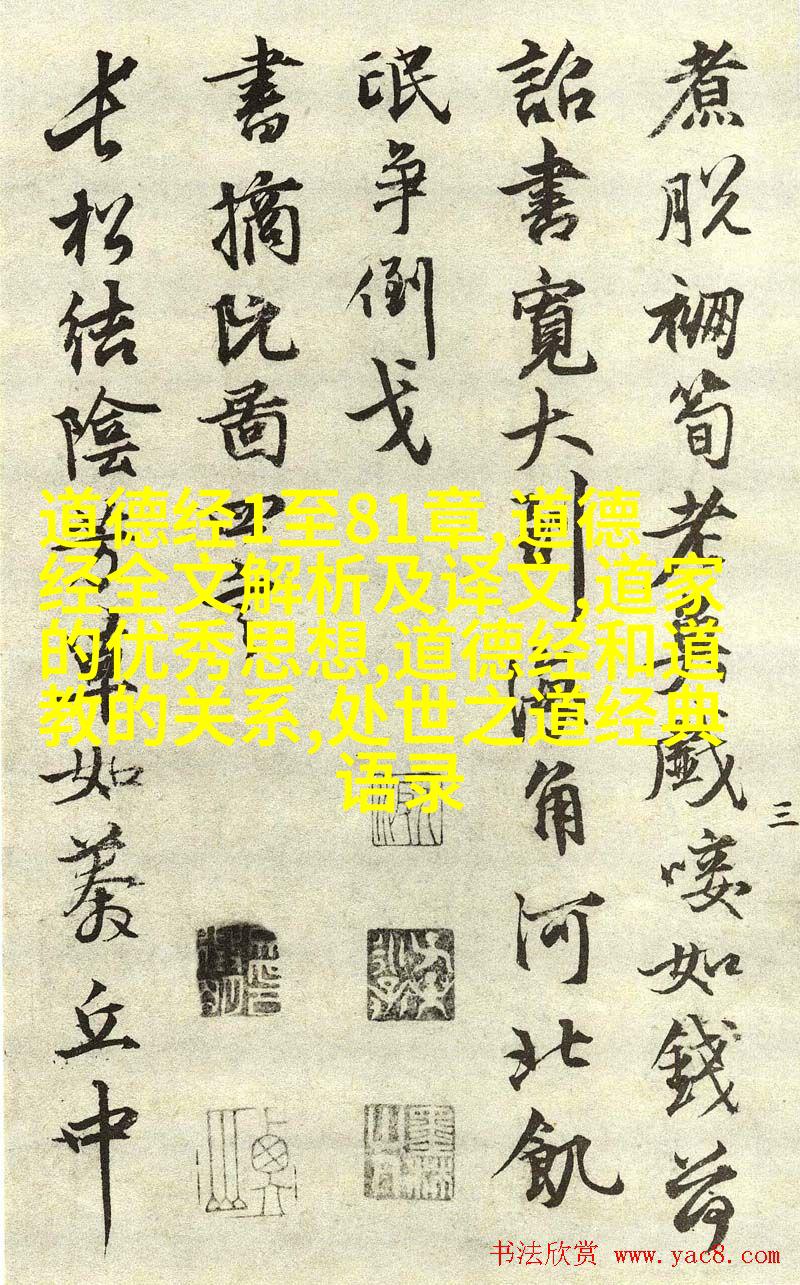 煮脱筍老戲唼如錢荷
三
詔書寬大到角河北飢
甿争倒戈
書摘阮圖四
長松結陰如蓁丘中
道德经1至81章,道德
经全文解析及译文,道家
的优秀思想,道德经和道
教的关系,处世之道经典
语录
书法欣赏 www.yac8.com